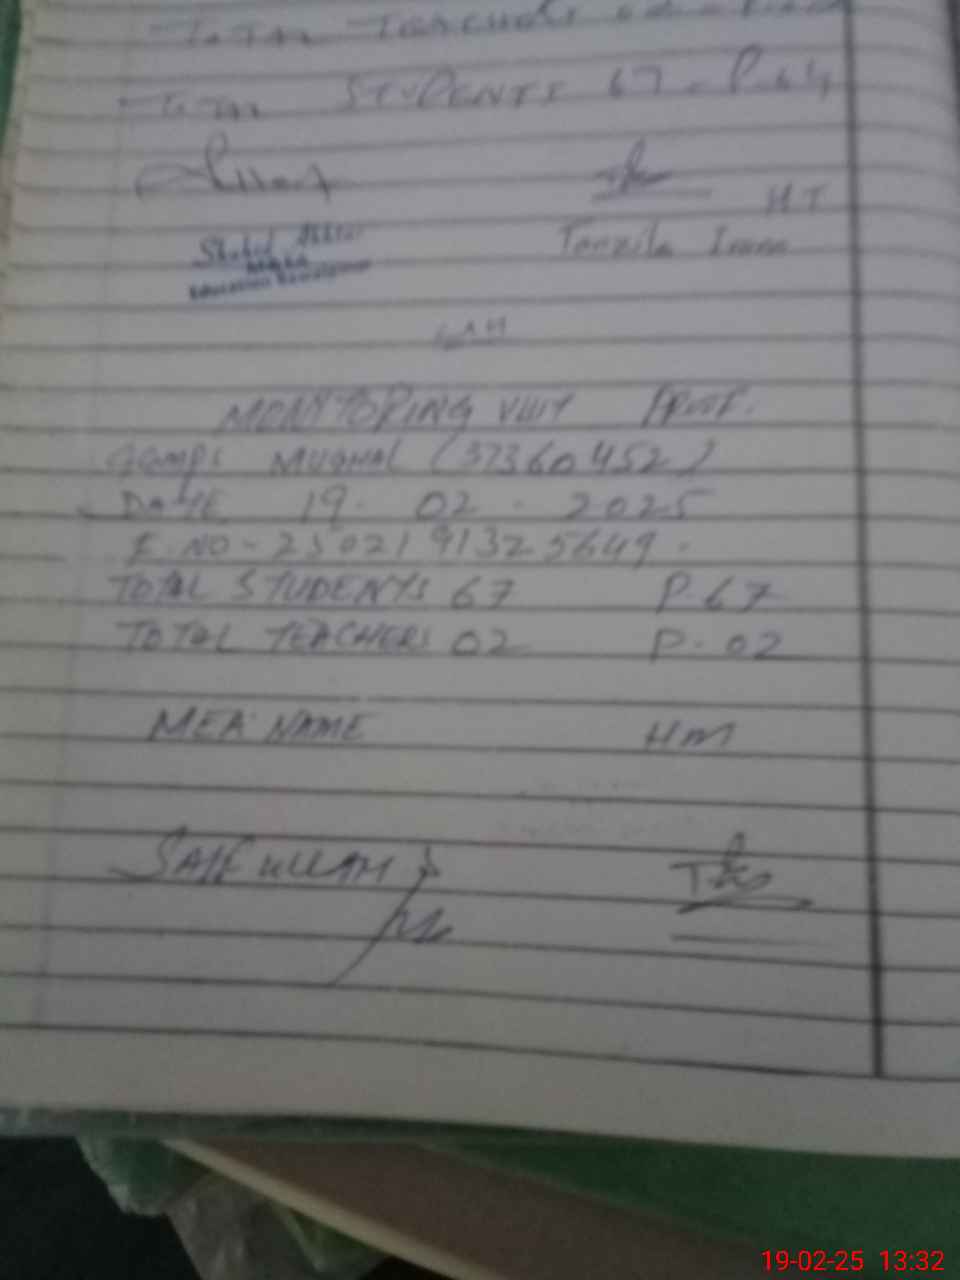 TOTAL TEACHERS
TOTAL STUDENTS 67 - P.64
HT
Shahid
Tanzila
Education Rawalpindi
MONITORING VISIT PROOF.
GGMPS MUGHAL (37360452)
DATE 19 - 02 - 2025
E.NO - 2502191325649.
TOTAL STUDENTS 67 P.67
TOTAL TEACHERS 02 P.02
MEA NAME HM
SAIF ULLAH
19-02-25 13:32